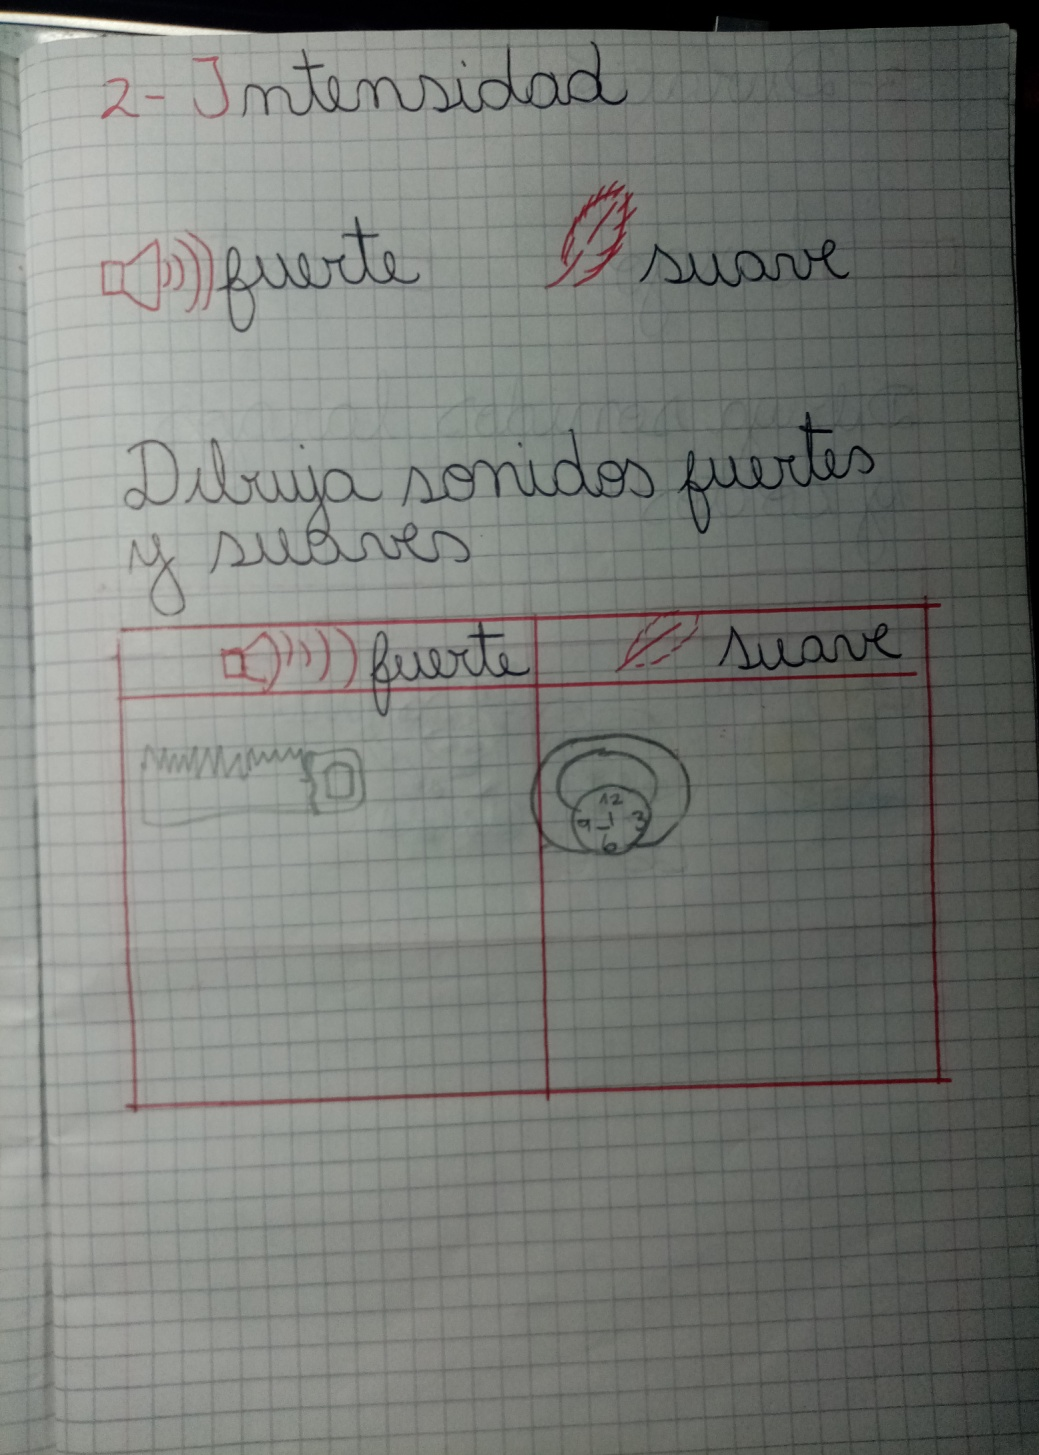 2- Intensidad
fuerte suave
Dibuja sonidos fuertes
y suaves
fuerte suave
12
9 3
6